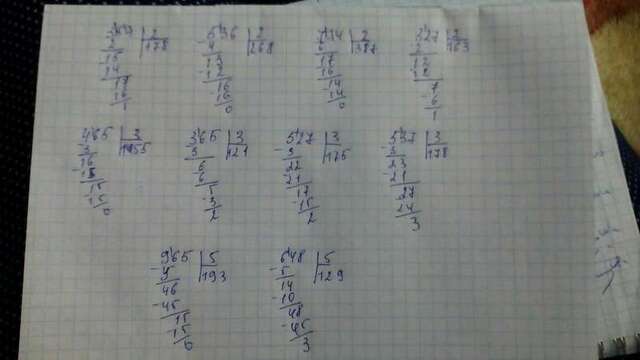 357 2
- 2 178
15
- 14
17
- 16
1
536 2
- 4 268
13
- 12
16
- 16
0
774 2
- 6 387
17
- 16
14
- 14
0
327 2
- 2 163
12
- 12
7
- 6
1
465 3
- 3 155
16
- 15
15
- 15
0
365 3
- 3 121
6
- 6
5
- 3
2
527 3
- 3 175
22
- 21
17
- 15
2
537 3
- 3 178
23
- 21
27
- 24
3
965 5
- 5 193
46
- 45
15
- 15
0
648 5
- 5 129
14
- 10
48
- 45
3